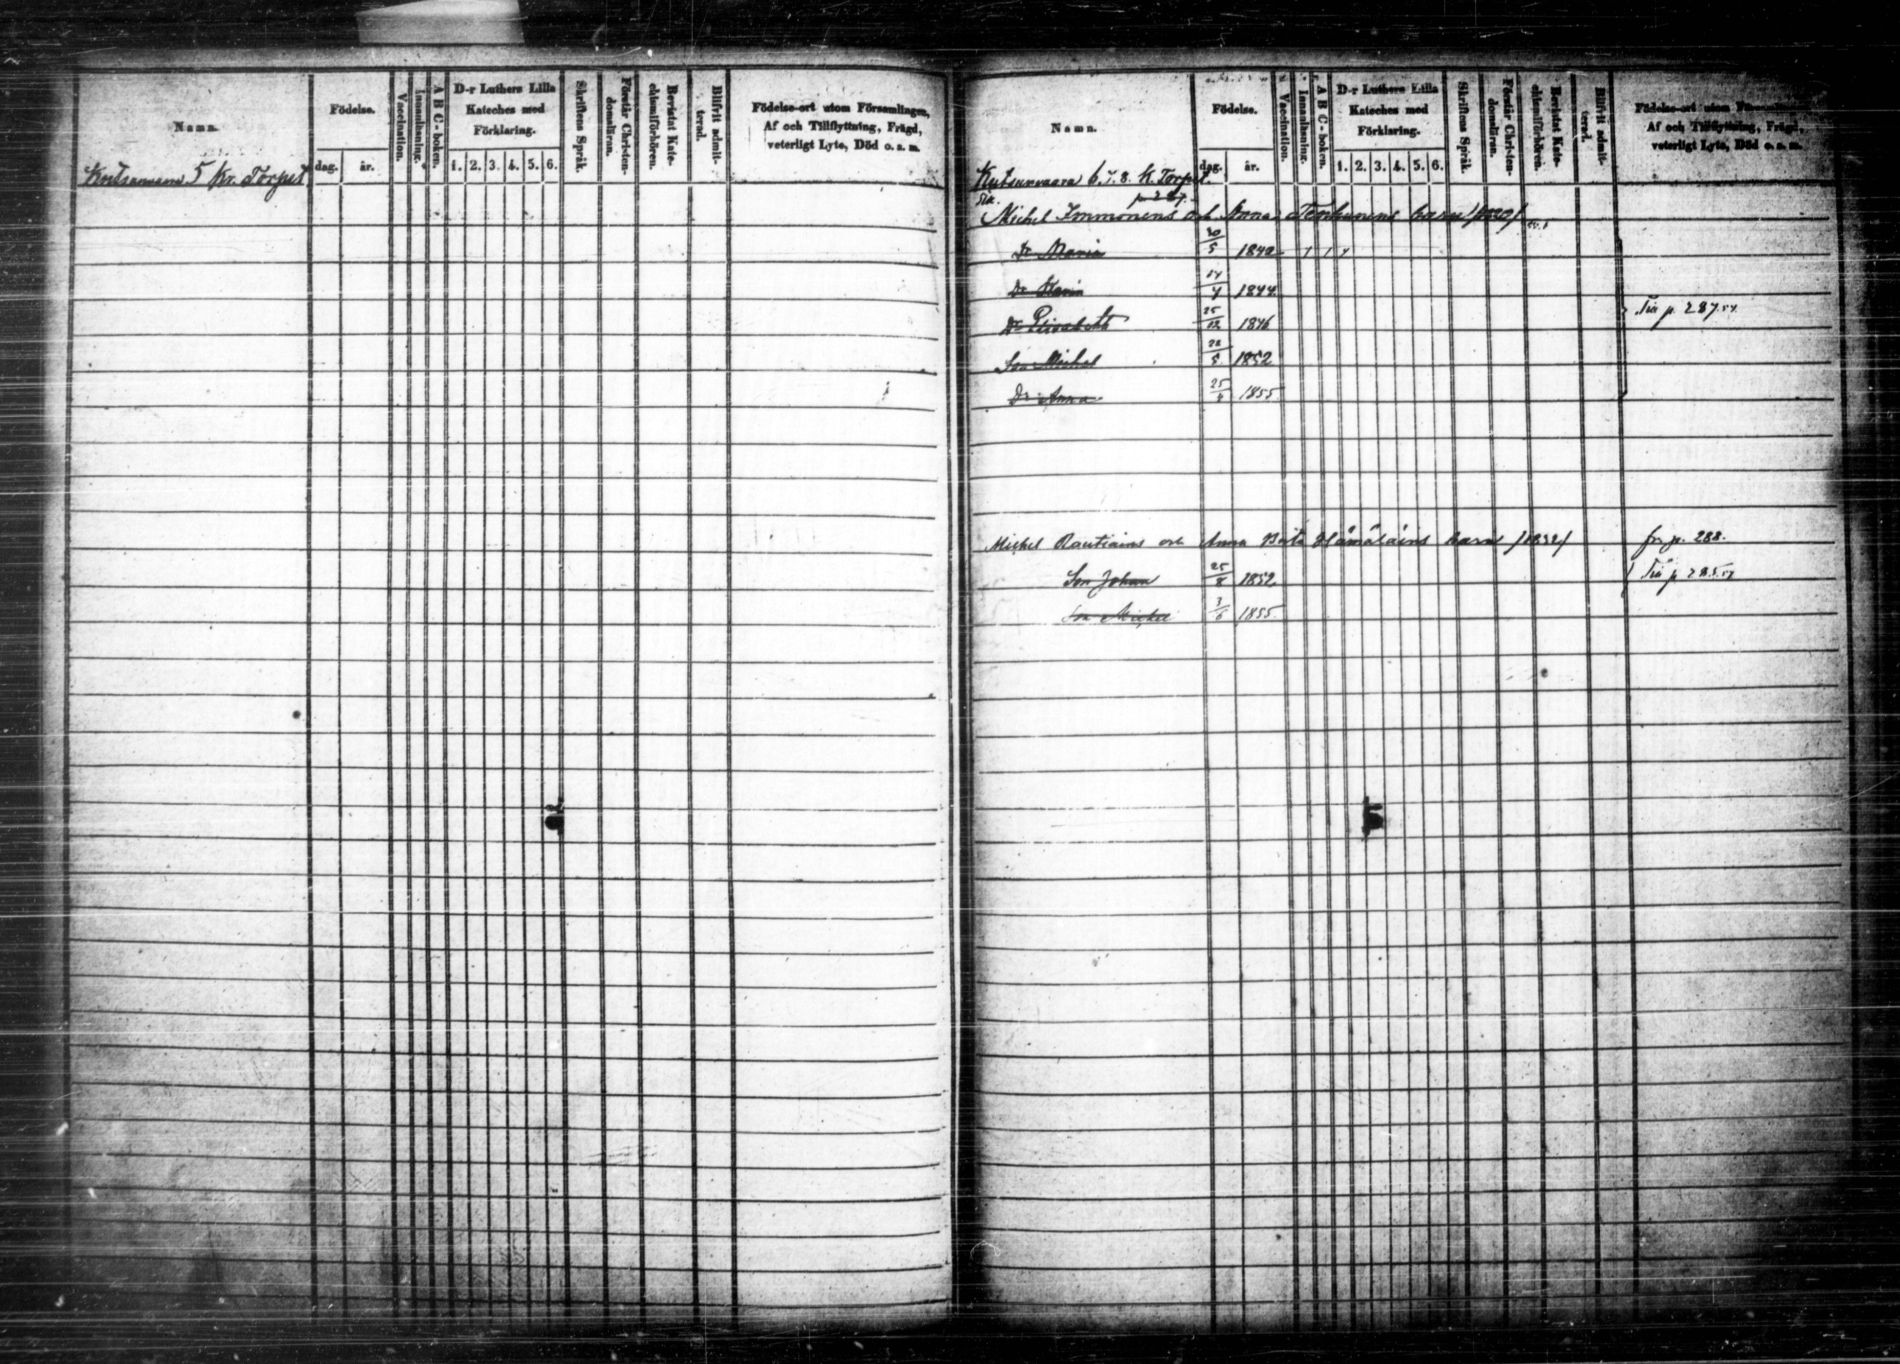 Namn.
Födelse.
dag. år.
Vaccination.
Innanläsning.
A B C-boken.
D-r Luthers Lilla
Kateches med
Förklaring.
1. 2. 3. 4. 5. 6.
Skriftens Språk.
Förstår Christen-
domsläran.
Bevistat Kate-
chismiförhören.
Blifvit admit-
terad.
Födelse-ort utom Församlingen,
Af och Tillflyttning, Frägd,
veterligt Lyte, Död o. s. m.
Kutsunvaara 5 Kr. Torpet
Namn.
Födelse.
dag. år.
Vaccination.
Innanläsning.
A B C-boken.
D-r Luthers Lilla
Kateches med
Förklaring.
1. 2. 3. 4. 5. 6.
Skriftens Språk.
Förstår Christen-
domsläran.
Bevistat Kate-
chismiförhören.
Blifvit admit-
terad.
Födelse-ort utom Församlingen,
Af och Tillflyttning, Frägd,
veterligt Lyte, Död o. s. m.
Kutsunvaara 6. 7. 8. K. Torpet.
Michel Immonens och Anna Tenhunens barn
Dr Maria 30/5 1842
Dr Karin 1844
Dr Elisabeth 25/12 1846 Till p. 287.57
Son Michel 1852
Dr Anna 1855
Michel Rautiains och Anna Brita Hämäläins barn /1832/ fr. p. 288.
Son Johan 25/8 1852 Till p 285.57
Son Michel 3/6 1855